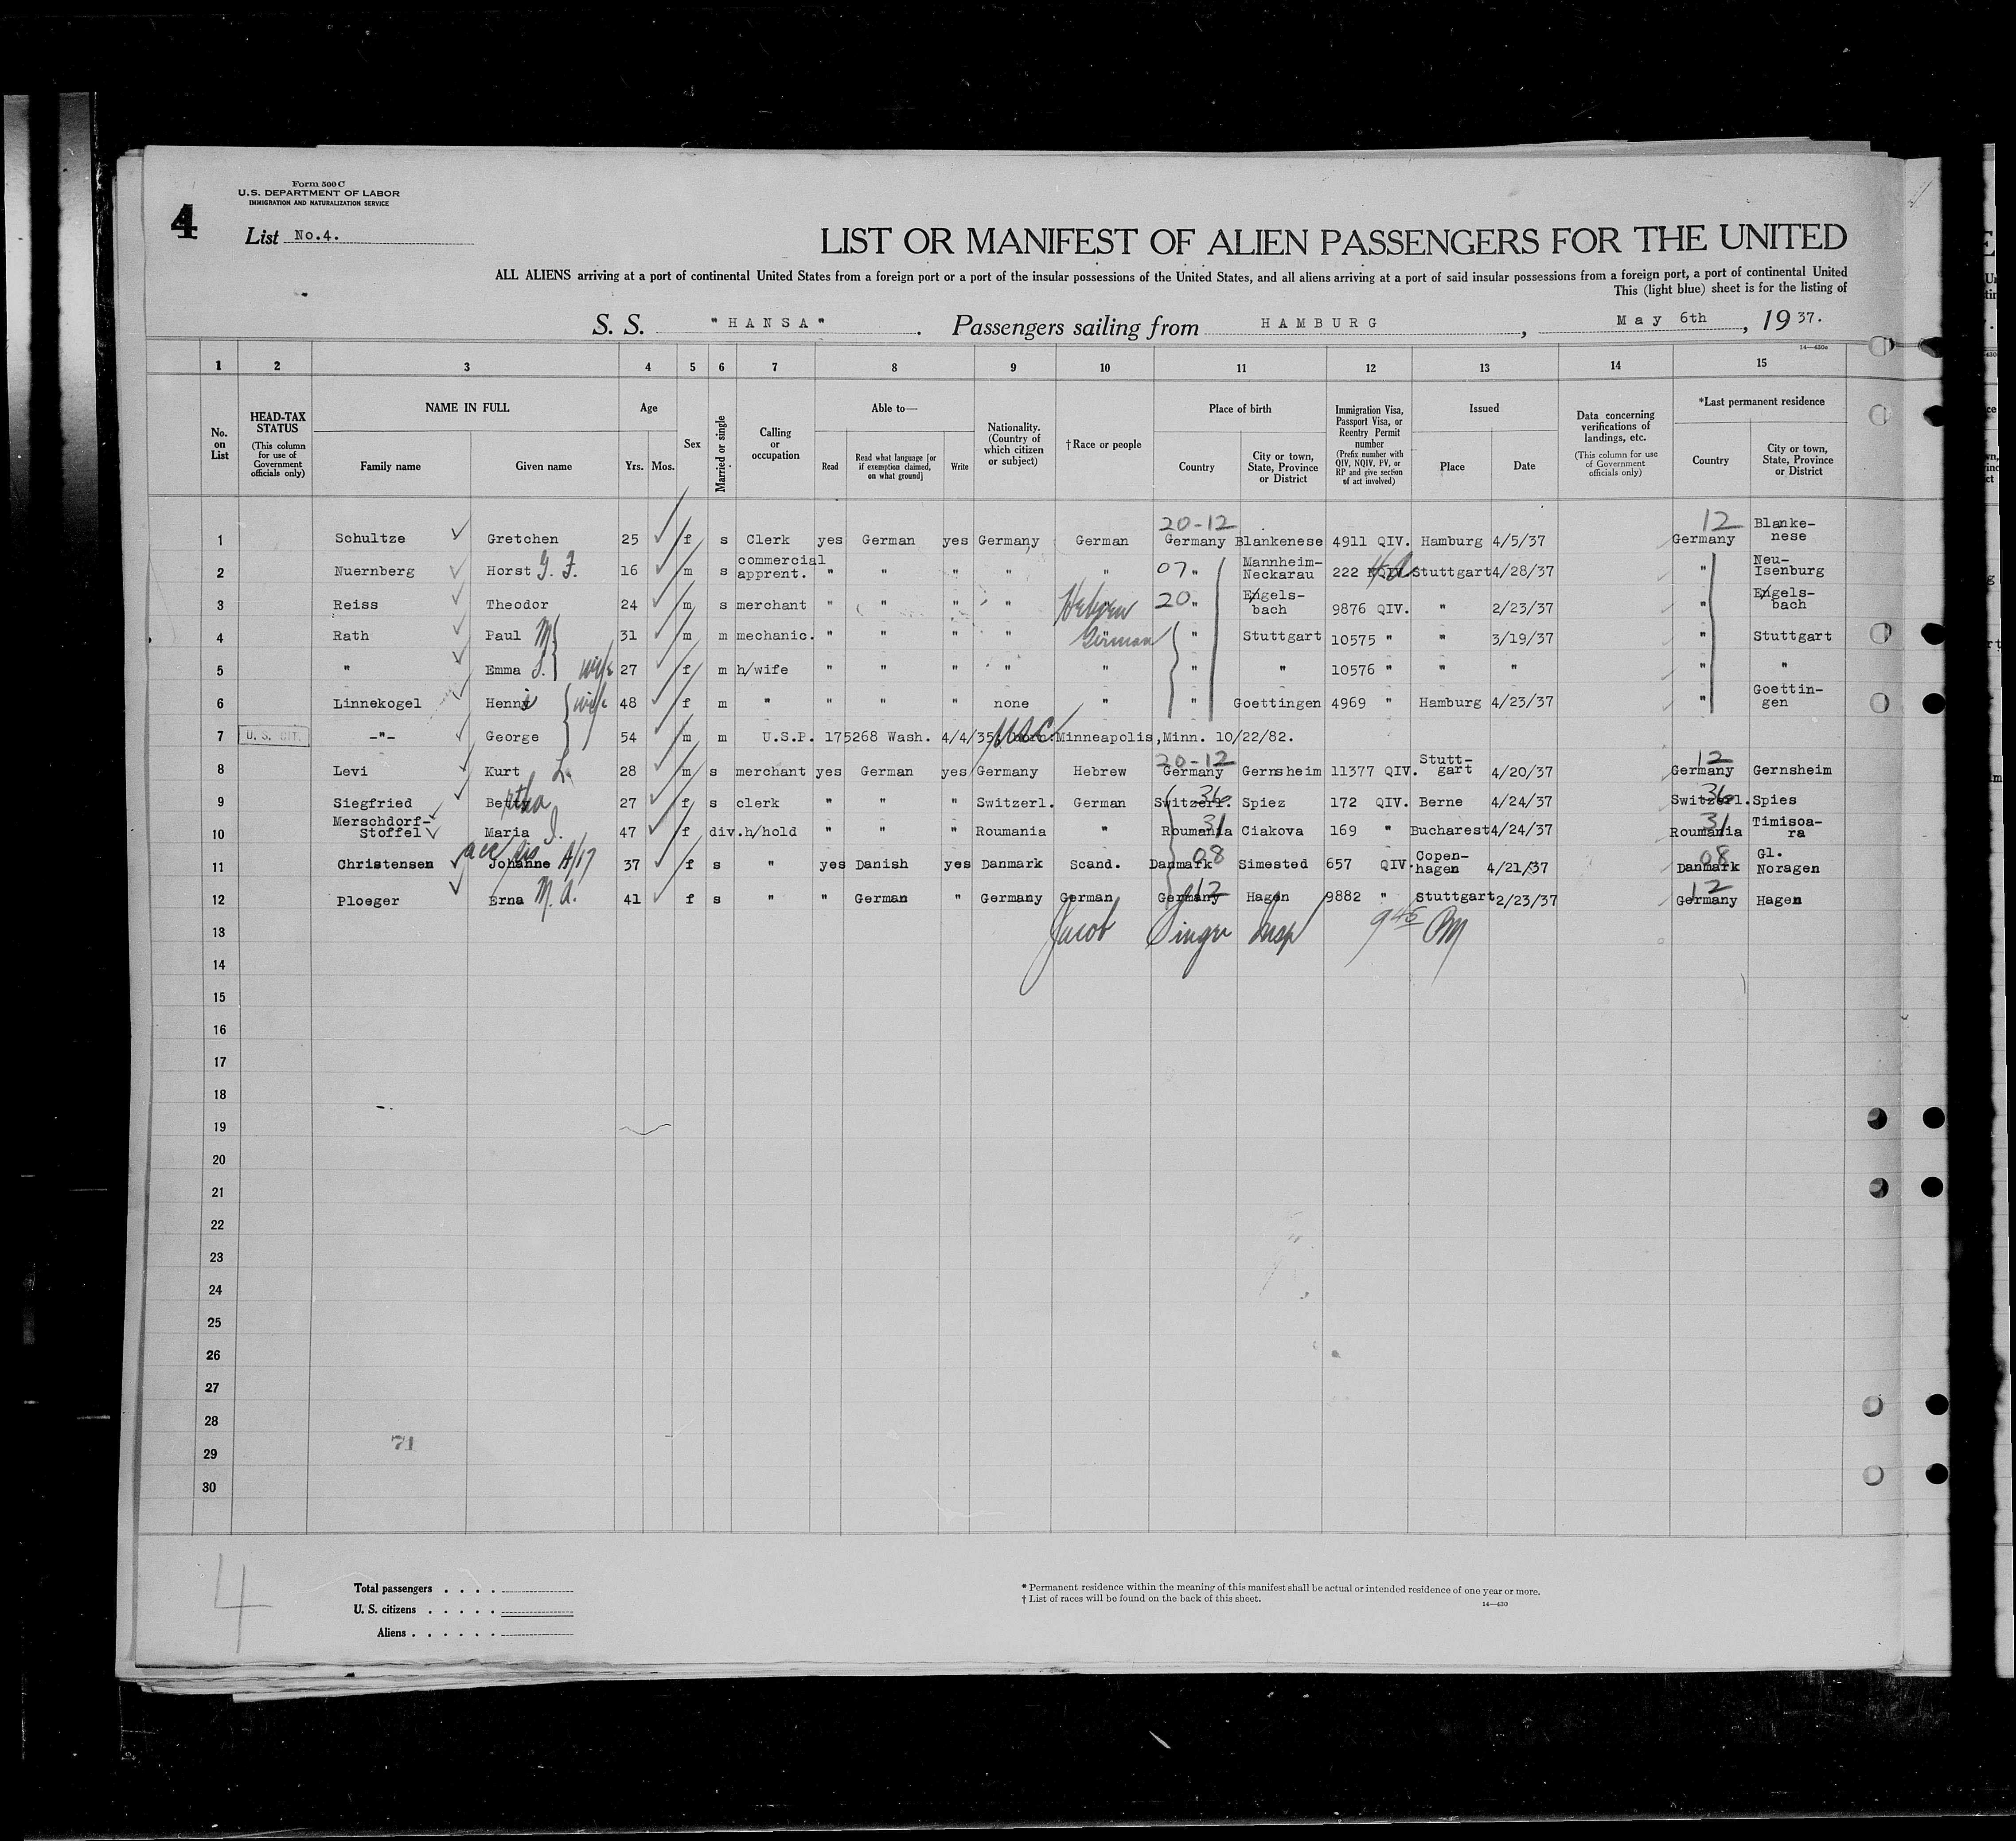 Form 500 C
U.S. DEPARTMENT OF LABOR
IMMIGRATION AND NATURALIZATION SERVICE
4
List No.4.
LIST OR MANIFEST OF ALIEN PASSENGERS FOR THE UNITED
ALL ALIENS arriving at a port of continental United States from a foreign port or a port of the insular possessions of the United States, and all aliens arriving at a port of said insular possessions from a foreign port, a port of continental United
This (light blue) sheet is for the listing of
S. S. "HANSA". Passengers sailing from HAMBURG, May 6th, 1937.
14—430c
1 2 3 4 5 6 7 8 9 10 11 12 13 14 15
No. on List
HEAD-TAX STATUS (This column for use of Government officials only)
NAME IN FULL
Family name
Given name
Age
Yrs. Mos.
Sex
Married or single
Calling or occupation
Able to—
Read
Read what language [or if exemption claimed, on what ground]
Write
Nationality. (Country of which citizen or subject)
†Race or people
Place of birth
Country
City or town, State, Province or District
Immigration Visa, Passport Visa, or Reentry Permit number (Prefix number with QIV, NQIV, PV, or RP and give section of act involved)
Issued
Place
Date
Data concerning verifications of landings, etc. (This column for use of Government officials only)
*Last permanent residence
Country
City or town, State, Province or District
20-12 12
1 Schultze Gretchen 25 f s Clerk yes German yes Germany German Germany Blankenese 4911 QIV. Hamburg 4/5/37 Germany Blanke-nese
2 Nuernberg Horst G. F. 16 m s commercial apprent. " " " " " 07 " Mannheim-Neckarau 222 Stuttgart 4/28/37 " Neu-Isenburg
3 Reiss Theodor 24 m s merchant " " " " Hebrew 20 " Engels-bach 9876 QIV. " 2/23/37 " Engels-bach
4 Rath Paul M 31 m m mechanic. " " " " German " Stuttgart 10575 " " 3/19/37 " Stuttgart
5 " Emma S. wife 27 f m h/wife " " " " " " " 10576 " " " " "
6 Linnekogel Henni wife 48 f m " " " " none " " Goettingen 4969 " Hamburg 4/23/37 " Goettin-gen
7 U. S. CIT. -"- George 54 m m U.S.P. 175268 Wash. 4/4/35, born: Minneapolis, Minn. 10/22/82.
USC
20-12 12
8 Levi Kurt L. 28 m s merchant yes German yes Germany Hebrew Germany Gernsheim 11377 QIV. Stutt-gart 4/20/37 Germany Gernsheim
9 Siegfried Betty rtha 27 f s clerk " " " Switzerl. German Switzerl. 36 Spiez 172 QIV. Berne 4/24/37 Switzerl. 36 Spies
10 Merschdorf-Stoffel Maria I. 47 f div. h/hold " " " Roumania " Roumania 31 Ciakova 169 " Bucharest 4/24/37 Roumania 31 Timisoa-ra
11 Christensen Johanne A/17 37 f s " yes Danish yes Danmark Scand. Danmark 08 Simested 657 QIV. Copen-hagen 4/21/37 Danmark 08 Gl. Noragen
12 Ploeger Erna M. A. 41 f s " " German " Germany German Germany 12 Hagen 9882 " Stuttgart 2/23/37 Germany 12 Hagen
13 Jacob Singer Insp 9 45 PM
14
15
16
17
18
19
20
21
22
23
24
25
26
27
28
29
30
71
4
Total passengers . . . .
U. S. citizens . . . . .
Aliens . . . . . .
* Permanent residence within the meaning of this manifest shall be actual or intended residence of one year or more.
† List of races will be found on the back of this sheet.
14—430